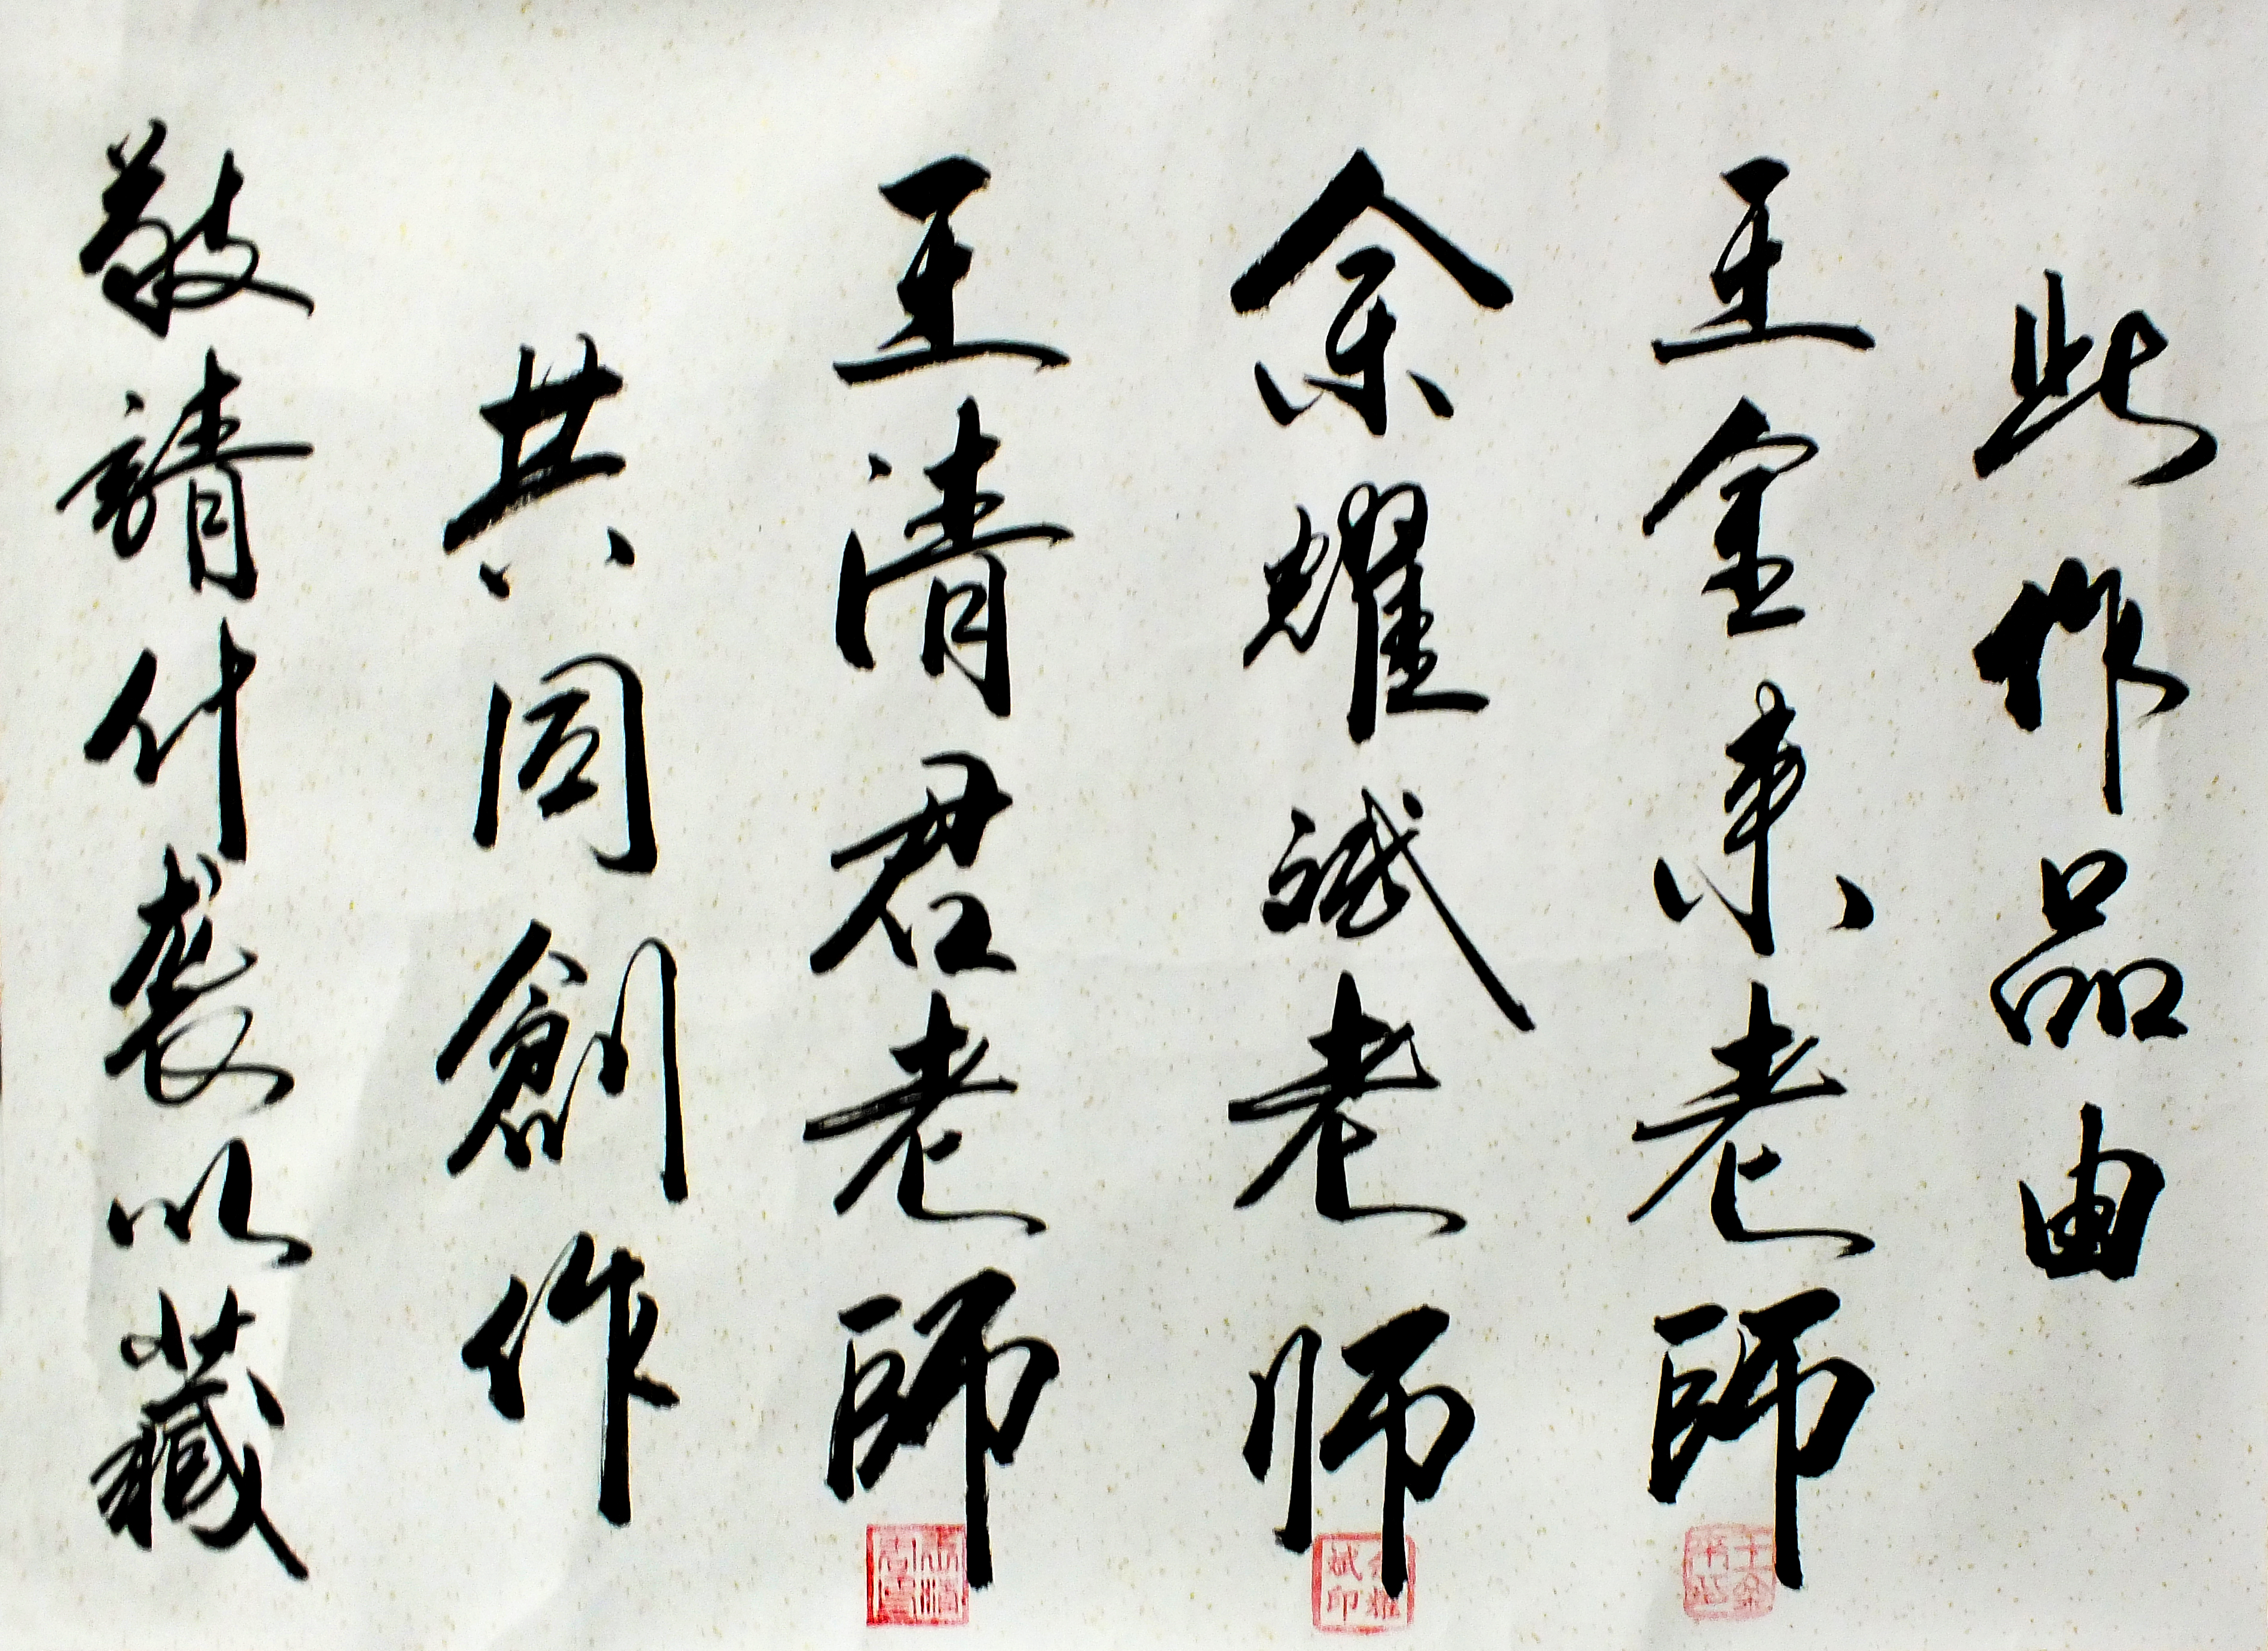 此作品由
王金老師
余耀斌老师
王清君老師
共同創作
敬請什袭以藏
余耀斌印